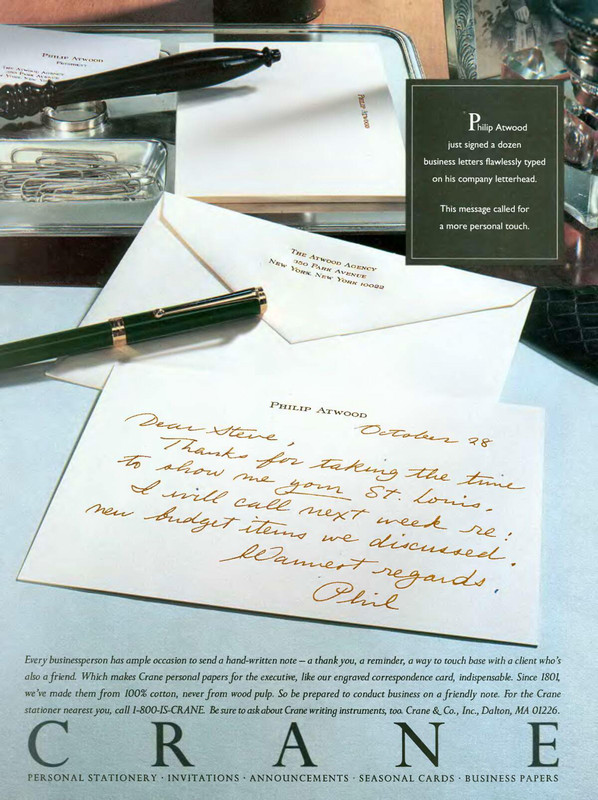 PHILIP ATWOOD
PRESIDENT
THE ATWOOD AGENCY
350 PARK AVENUE
NEW YORK
PHILIP ATWOOD
Philip Atwood
just signed a dozen
business letters flawlessly typed
on his company letterhead.
This message called for
a more personal touch.
THE ATWOOD AGENCY
350 PARK AVENUE
NEW YORK, NEW YORK 10022
PHILIP ATWOOD
October 28
Dear Steve,
Thanks for taking the time
to show me your St. Louis.
I will call next week re:
new budget items we discussed.
Warmest regards,
Phil
Every businessperson has ample occasion to send a hand-written note – a thank you, a reminder, a way to touch base with a client who's
also a friend. Which makes Crane personal papers for the executive, like our engraved correspondence card, indispensable. Since 1801,
we've made them from 100% cotton, never from wood pulp. So be prepared to conduct business on a friendly note. For the Crane
stationer nearest you, call 1-800-IS-CRANE. Be sure to ask about Crane writing instruments, too. Crane & Co., Inc., Dalton, MA 01226.
CRANE
PERSONAL STATIONERY · INVITATIONS · ANNOUNCEMENTS · SEASONAL CARDS · BUSINESS PAPERS